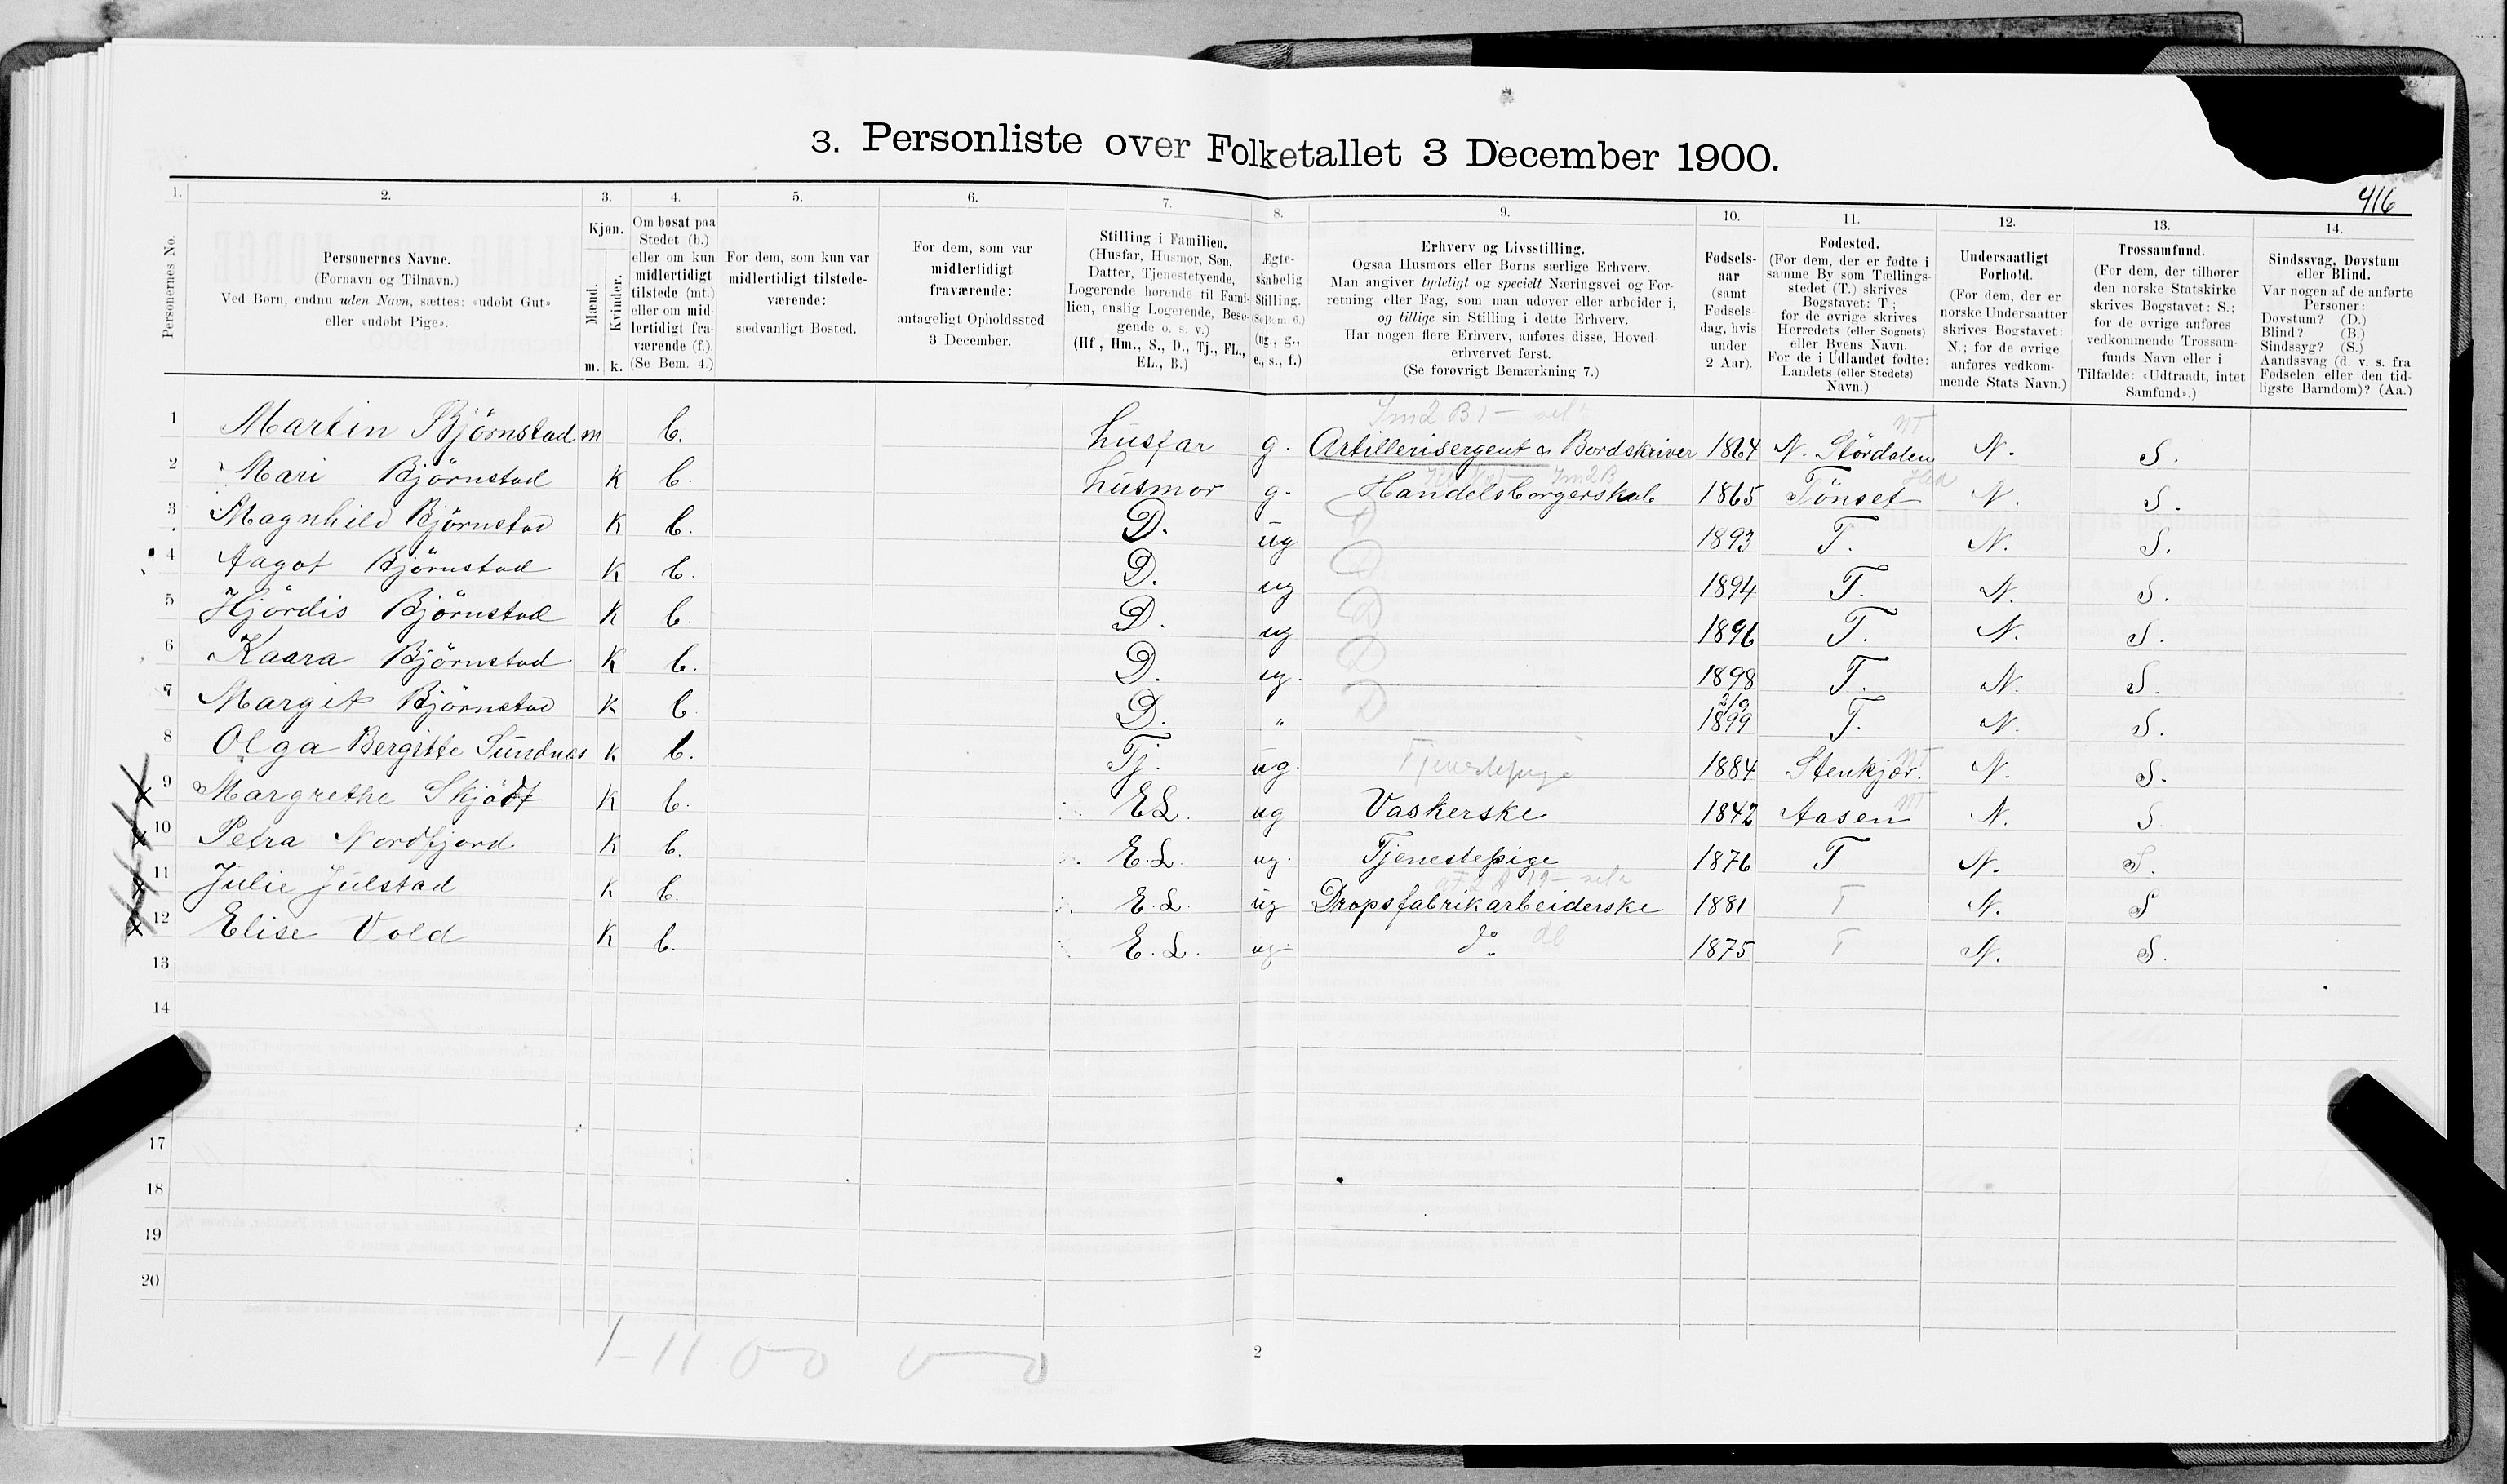 3. Personliste over Folketallet 3 December 1900.
416
1. 2. 3. 4. 5. 6. 7. 8. 9. 10. 11. 12. 13. 14.
Personernes No.
Personernes Navne.
(Fornavn og Tilnavn.)
Ved Børn, endnu uden Navn, sættes: «udøbt Gut»
eller «udøbt Pige».
Kjøn.
Mænd.
Kvinder.
m. k.
Om bosat paa
Stedet (b.)
eller om kun
midlertidigt
tilstede (mt.)
eller om mid-
lertidigt fra-
værende (f.).
(Se Bem. 4.)
For dem, som kun var
midlertidigt tilstede-
værende:
sædvanligt Bosted.
For dem, som var
midlertidigt
fraværende:
antageligt Opholdssted
3 December.
Stilling i Familien.
(Husfar, Husmor, Søn,
Datter, Tjenestetyende,
Logerende hørende til Fami-
lien, enslig Logerende, Besø-
gende o. s. v.)
(Hf, Hm., S., D., Tj., FL.,
EL., B.)
Ægte-
skabelig
Stilling.
(Se Bem. 6.)
(ug., g.,
e., s., f.)
Erhverv og Livsstilling.
Ogsaa Husmors eller Børns særlige Erhverv.
Man angiver tydeligt og specielt Næringsvei og For-
retning eller Fag, som man udøver eller arbeider i,
og tillige sin Stilling i dette Erhverv.
Har nogen flere Erhverv, anføres disse, Hoved-
erhvervet først.
(Se forøvrigt Bemærkning 7.)
Fødsels-
aar
(samt
Fødsels-
dag, hvis
under
2 Aar).
Fødested.
(For dem, der er fødte i
samme By som Tællings-
stedet (T.) skrives
Bogstavet: T;
for de øvrige skrives
Herredets (eller Sognets)
eller Byens Navn.
For de i Udlandet fødte:
Landets (eller Stedets)
Navn.)
Undersaatligt
Forhold.
(For dem, der er
norske Undersaatter
skrives Bogstavet:
N.; for de øvrige
anføres vedkom-
mende Stats Navn.)
Trossamfund.
(For dem, der tilhører
den norske Statskirke
skrives Bogstavet: S.;
for de øvrige anføres
vedkommende Trossam-
funds Navn eller i
Tilfælde: «Udtraadt, intet
Samfund».)
Sindssvag, Døvstum
eller Blind.
Var nogen af de anførte
Personer:
Døvstum? (D.)
Blind? (B.)
Sindssyg? (S.)
Aandssvag (d. v. s. fra
Fødselen eller den tid-
ligste Barndom)? (Aa.)
1 Martin Björnstad m b. husfar g. Artillerisergent & Bordskriver 1864 N. Stördalen NT N. S.
2 Mari Björnstad K b. husmor g. Handelsborgerskab 1865 Tönset Hed N. S.
3 Magnhild Björnstad K b. D. ug D 1893 T. N. S.
4 Aagot Björnstad K b. D. ug D 1894 T. N. S.
5 Hjördis Björnstad K b. D. ug D 1896 T. N. S.
6 Kaara Björnstad K b. D. ug. D 1898 T. N. S.
7 Margit Björnstad K b. D. " D 2/9 1899 T. N. S.
8 Olga Bergitte Sundnes K b. Tj. ug. Tjenestepige 1884 Stenkjær. NT N. S.
9 Margrethe Skjödt K b. EL. ug Vaskerske 1842 Aasen NT N. S
10 Petra Nordfjord. K b. E.L. ug. Tjenestepige 1876 T. N. S.
11 Julie Julstad K b. E.L. ug Dropsfabrikarbeiderske 1881 T N. S
12 Elise Vold K b. E.L. ug do 1875 T N. S.
13
14
17
18
19
20
1-11
2